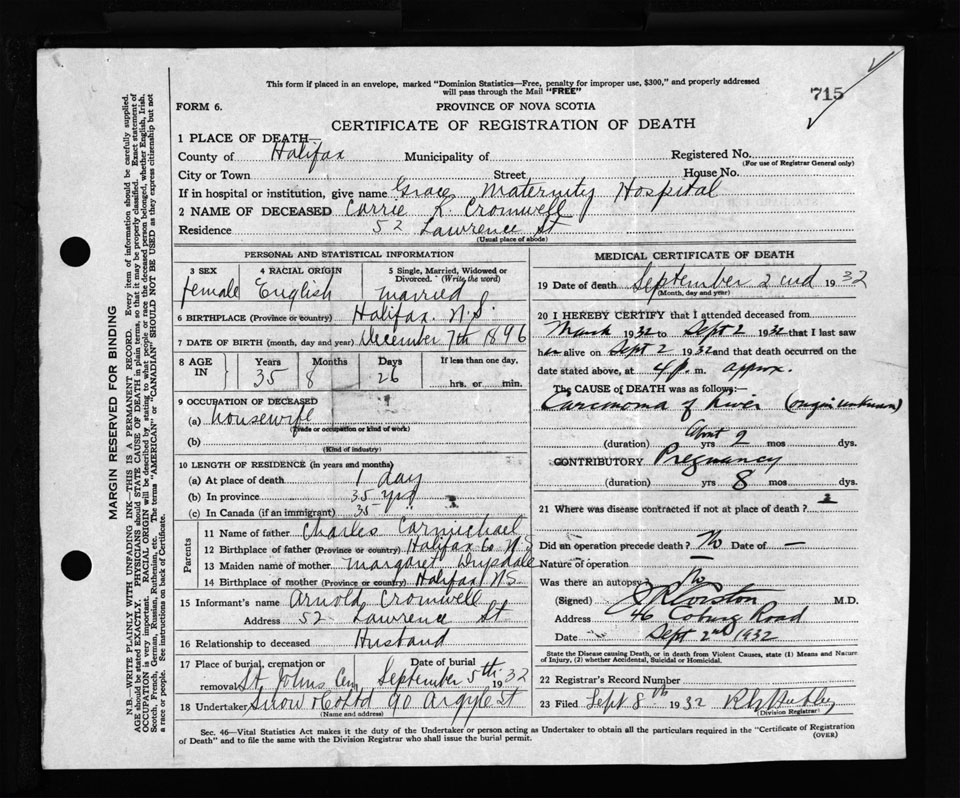 This form if placed in an envelope, marked "Dominion Statistics—Free, penalty for improper use, $300," and properly addressed
will pass through the Mail "FREE"
715
FORM 6.
PROVINCE OF NOVA SCOTIA
CERTIFICATE OF REGISTRATION OF DEATH
1 PLACE OF DEATH—
County of Halifax Municipality of Registered No.
(For use of Registrar General only)
City or Town Street House No.
If in hospital or institution, give name Grace Maternity Hospital
2 NAME OF DECEASED Carrie K. Cromwell
Residence 52 Lawrence St
(Usual place of abode)
PERSONAL AND STATISTICAL INFORMATION
3 SEX 4 RACIAL ORIGIN 5 Single, Married, Widowed or
Divorced. (Write the word)
female English married
6 BIRTHPLACE (Province or country) Halifax. N.S.
7 DATE OF BIRTH (month, day and year) December 7th 1896
8 AGE IN Years Months Days If less than one day,
35 8 26 hrs. or min.
9 OCCUPATION OF DECEASED
(a) housewife
(Trade or occupation or kind of work)
(b)
(Kind of industry)
10 LENGTH OF RESIDENCE (in years and months)
(a) At place of death 1 day
(b) In province 35 yrs
(c) In Canada (if an immigrant) 35
Parents
11 Name of father Charles Carmichael
12 Birthplace of father (Province or country) Halifax Co N.S
13 Maiden name of mother Margaret Drysdale
14 Birthplace of mother (Province or country) Halifax N.S.
15 Informant's name Arnold Cromwell
Address 52 Lawrence St
16 Relationship to deceased Husband
17 Place of burial, cremation or Date of burial
removal St Johns Cem September 5th 1932
18 Undertaker Snow & Co Ltd 90 Argyle St
(Name and address)
MEDICAL CERTIFICATE OF DEATH
19 Date of death September 2nd 1932
(Month, day and year)
20 I HEREBY CERTIFY that I attended deceased from
March 1932 to Sept 2 1932 that I last saw
her alive on Sept 2 1932 and that death occurred on the
date stated above, at 4 p. m. approx.
The CAUSE OF DEATH was as follows:—
Carcinoma of liver (origin unknown)
About 2
(duration) yrs mos dys.
CONTRIBUTORY Pregnancy
(duration) yrs 8 mos dys.
21 Where was disease contracted if not at place of death ?
Did an operation precede death ? No Date of —
Nature of operation —
Was there an autopsy ? No
(Signed) M.D.
Address 46 Coburg Road
Date Sept 2nd 1932
State the Disease causing Death, or in death from Violent Causes, state (1) Means and Nature
of Injury, (2) whether Accidental, Suicidal or Homicidal.
22 Registrar's Record Number
23 Filed Sept 8th 1932
Division Registrar
Sec. 46—Vital Statistics Act makes it the duty of the Undertaker or person acting as Undertaker to obtain all the particulars required in the "Certificate of Registration
of Death" and to file the same with the Division Registrar who shall issue the burial permit.
(OVER)
MARGIN RESERVED FOR BINDING
N.B.—WRITE PLAINLY WITH UNFADING INK—THIS IS A PERMANENT RECORD. Every item of information should be carefully supplied.
AGE should be stated EXACTLY. PHYSICIANS should STATE CAUSE OF DEATH in plain terms, so that it may be properly classified. Exact statement of
OCCUPATION is very important. RACIAL ORIGIN will be described by stating to what people or race the deceased person belonged, whether English, Irish,
Scotch, French, German, Russian, Ruthenian, etc. The terms "AMERICAN" or "CANADIAN" SHOULD NOT BE USED as they express citizenship but not
a race or people. See instructions on back of Certificate.